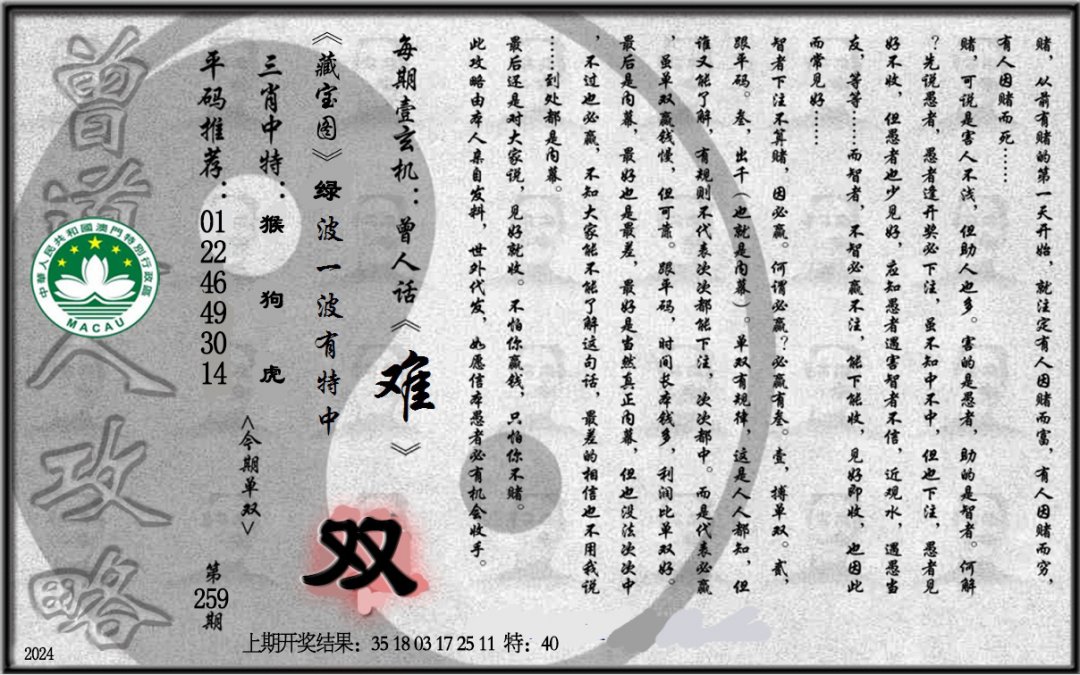 赌，从前有赌的第一天开始，就注定有人因赌而富，有人因赌而穷，
有人因赌而死……
赌，可说是害人不浅，但助人也多。害的是愚者，助的是智者。何解
？先说愚者，愚者逢开奖必下注，虽不知中不中，但也下注，愚者见
好不收，但愚者也少见好，应知愚者遇害智者不信，近观水，遇愚当
友，等等……而智者，不智必赢不注，能下能收，见好即收，也因此
而常见好……
智者下注不算赌，因必赢。何谓必赢？必赢有叁。壹，搏单双。贰，
跟平码。叁，出千（也就是内幕）。单双有规律，这是人人都知，但
谁又能了解，有规则不代表次次都能下注，次次都中。而是代表必赢
，虽单双赢钱慢，但可靠。跟平码，时间长本钱多，利润比单双好。
最后是内幕，最好也是最差，最好是当然真正内幕，但也没法次次中
，不过也必赢，不知大家能不能了解这句话，最差的相信也不用我说
……到处都是内幕。
最后还是对大家说，见好就收。不怕你赢钱，只怕你不赌。
此攻略由本人亲自发料，世外代发，如愿信本愚者必有机会收手。
每期壹玄机：曾人话《难》
《藏宝图》绿波一波有特中
双
<今期单双>
三肖中特：猴 狗 虎
平码推荐：01 22 46 49 30 14
第259期
曾道人攻略
中華人民共和國澳門特別行政區
MACAU
上期开奖结果：35 18 03 17 25 11 特：40
2024